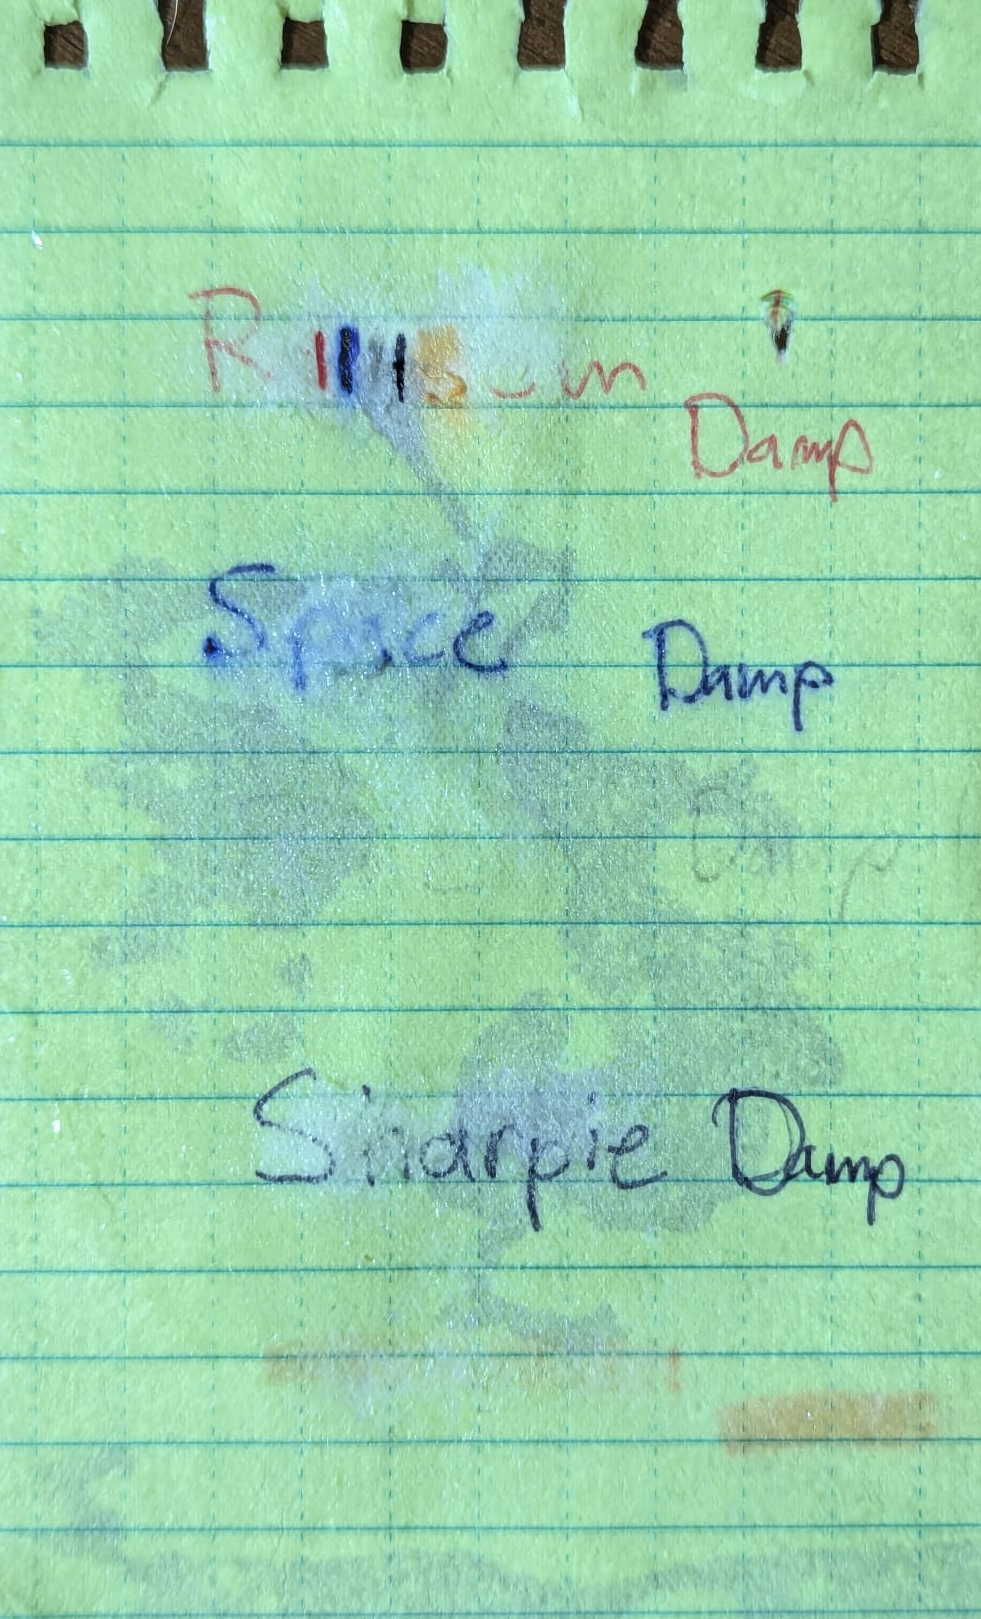 Damp
Space Damp
Damp
Sharpie Damp